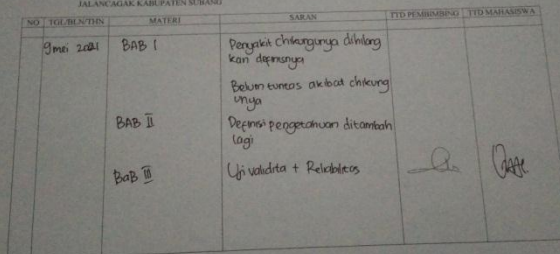 JALANCAGAK KABUPATEN SUBANG
NO TGL/BLN/THN MATERI SARAN TTD PEMBIMBING TTD MAHASISWA
9 mei 2021 BAB I Penyakit chikungunya dihilang
kan depresnya
Belum tuntas akibat chikung
unya
BAB II Definisi pengetahuan ditambah
lagi
BaB III Uji validita + Reliabilitas